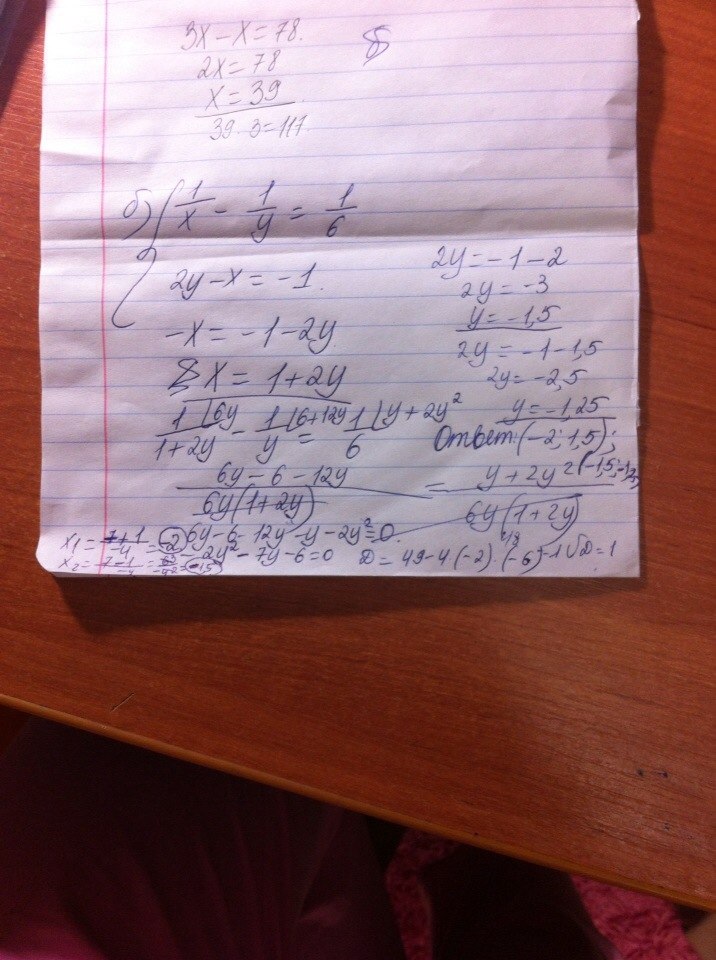 3x - x = 78.
2x = 78
x = 39
39 · 3 = 117.
б) { 1/x - 1/y = 1/6
2y - x = -1.
-x = -1 - 2y
x = 1 + 2y
1/(1+2y) |6y - 1/y |6+12y = 1/6 |y + 2y²
(6y - 6 - 12y)/(6y(1+2y)) = (y + 2y²)/(6y(1+2y))
6y - 6 - 12y - y - 2y² = 0.
-2y² - 7y - 6 = 0 D = 49 - 4·(-2)·(-6) = 1 √D = 1
x₁ = (7+1)/-4 = -2
x₂ = (7-1)/-4 = = -1,5
2y = -1 - 2
2y = -3
y = -1,5
2y = -1 - 1,5
2y = -2,5
y = -1,25
Ответ: (-2; 1,5);
(-1,5; -1,25)